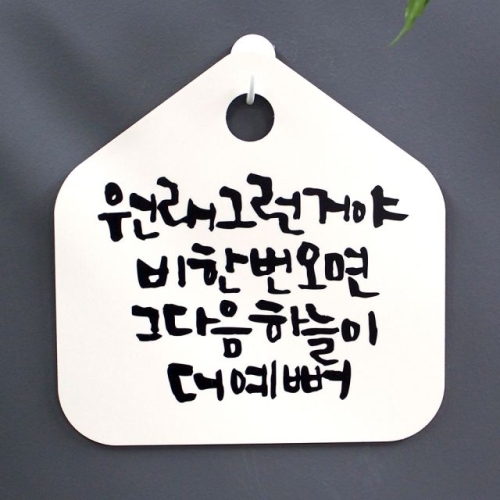 원래그런거야
비한번오면
그다음하늘이
더예뻐